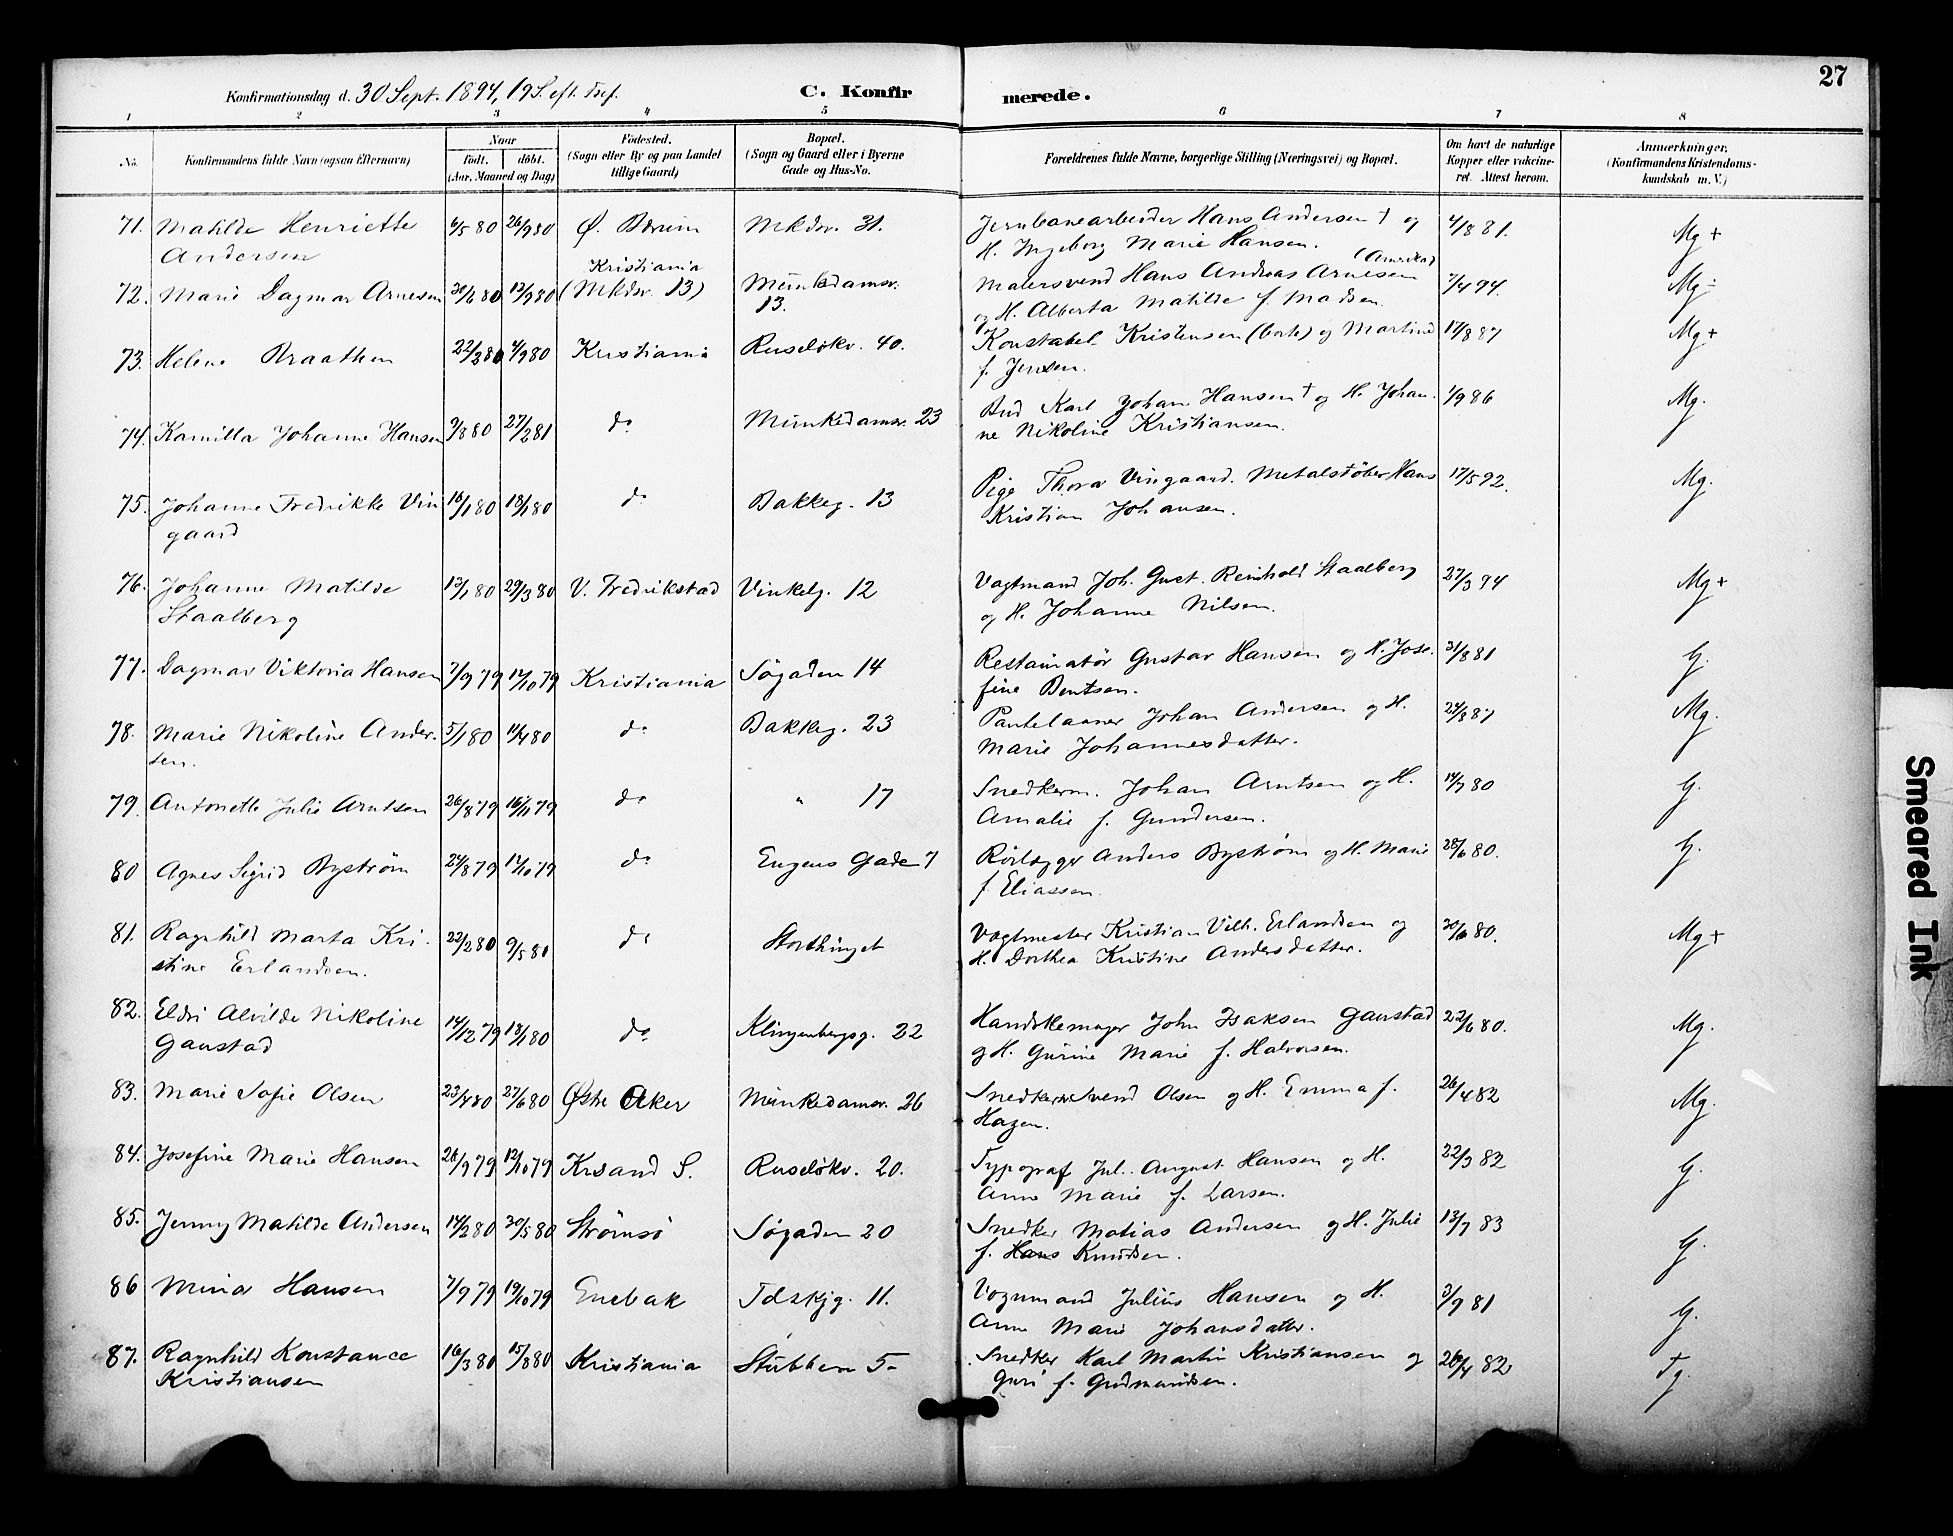 27
Konfirmationsdag d. 30 Sept. 1894, 19 S. eft. Tref.
C. Konfirmerede.
1 2 3 4 5 6 7 8
No.
Konfirmandens fulde Navn (ogsaa Efternavn)
Naar
født. døbt.
(Aar, Maaned og Dag)
Fødested.
(Sogn eller By og paa Landet
tillige Gaard)
Bopæl.
(Sogn og Gaard eller i Byerne
Gade og Hus-No.
Forældrenes fulde Navne, borgerlige Stilling (Næringsvei) og Bopæl.
Om havt de naturlige
Kopper eller vakcine-
ret. Attest herom.
Anmærkninger,
(Konfirmandens Kristendoms-
kundskab m. V.)
71. Matilde Henriette 6/5 80 26/9 80 Ø. Bærum Mkdsv. 31. Jernbanearbeider Hans Andersen † og 4/8 81. Mg +
Andersen H. Ingeborg Marie Hansen.
72. Marie Dagmar Arnesen 30/6 80 12/9 80 Kristiania (Mkdsv. 13) Munkedamsv. 13. Malersvend Hans Andreas Arnesen (Amerika) 7/4 94. Mg ÷
og H. Alberta Matilde f. Madsen.
73. Helene Braathen 22/3 80 4/9 80 Kristiania Ruseløkv. 40. Konstabel Kristensen (borte) og Martine 17/8 87 Mg +
f. Jensen.
74. Kamilla Johanne Hansen 9/8 80 27/2 81 do Munkedamsv. 23 Bud Karl Johan Hansen † og H. Johan- 1/9 86 Mg.
ne Nikoline Kristiansen.
75. Johanne Fredrikke Vin 16/1 80 18/1 80 do Bakkeg. 13 Pige Thora Vingaard. Metalstøber Hans 17/5 92. Mg.
gaard Kristian Johansen.
76. Johanne Matilde 13/1 80 29/3 80 V. Fredrikstad Vinkelg. 12 Vagtmand Joh. Gust. Reinhold Staalberg 27/3 94 Mg +
Staalberg og H. Johanne Nilsen.
77. Dagmar Viktoria Hansen 7/9 79 17/10 79 Kristiania Søgaden 14 Restauratør Gustav Hansen og H. Jose- 31/8 81 G.
fine Bentsen.
78. Marie Nikoline Ander- 5/1 80 11/4 80 do Bakkeg. 23 Pantelaaner Johan Andersen og H. 24/8 87 Mg.
sen. Marie Johannesdatter.
79. Antonette Julie Arntsen 26/8 79 16/11 79 do " 17 Snedkerm. Johan Arntsen og H. 14/7 80 G.
Amalie f. Gundersen.
80 Agnes Sigrid Byström 24/8 79 17/10 79 do Eugens Gade 7 Rørlægger Anders Byström og H. Marie 28/6 80. G.
f. Eliassen.
81. Ragnhild Marta Kri- 22/2 80 9/5 80 do Storthinget Vagtmester Kristian Vilh. Erlandsen og 30/6 80. Mg +
stine Erlandsen. H. Dorthea Kristine Andersdatter.
82. Eldri Alvilde Nikoline 14/12 79 18/1 80 do Klingenbergg. 22 Handskemager John Isaksen Ganstad 22/6 80. Mg.
Ganstad og H. Gurine Marie f. Halvorsen.
83. Marie Sofie Olsen 23/4 80 27/6 80 Østre Aker Munkedamsv. 26 Snedker Svend Olsen og H. Emma f. 26/4 82 Mg.
Hagen.
84. Josefine Marie Hansen 26/9 79 12/10 79 Krsand S. Ruseløkv. 20. Typograf Jul. August Hansen og H. 22/3 82 G.
Anne Marie f. Larsen.
85. Jenny Matilde Andersen 14/2 80 30/5 80 Strømsø Søgaden 20 Snedker Matias Andersen og H. Julie 13/7 83 G.
f. Hans Knudsen.
86 Mina Hansen 7/9 79 19/10 79 Enebak Tdskjg. 11. Vognmand Julius Hansen og H. 3/9 81 G.
Anne Marie Johansdatter.
87. Ragnhild Konstance 16/3 80 15/8 80 Kristiania Stubben 5. Snedker Karl Martin Kristiansen og 26/4 82 Tg.
Kristiansen Guri f. Gudmundsen.
Smeared Ink